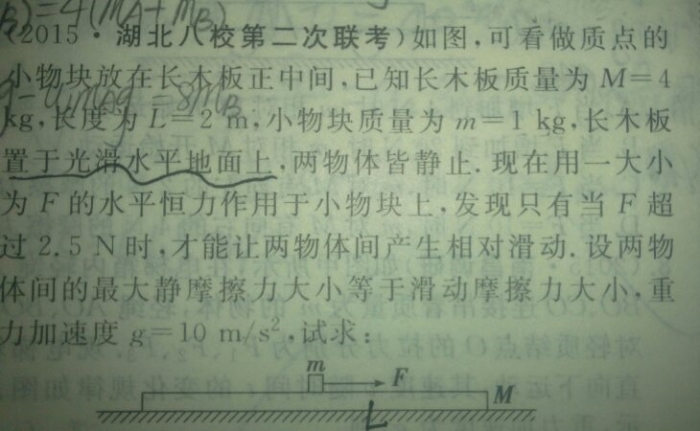 B)=4(mA+mB)
(2015·湖北八校第二次联考)如图,可看做质点的
小物块放在长木板正中间,已知长木板质量为 M=4
=8mB
kg,长度为 L=2 m,小物块质量为 m=1 kg,长木板
置于光滑水平地面上,两物体皆静止.现在用一大小
为 F 的水平恒力作用于小物块上,发现只有当 F 超
过 2.5 N 时,才能让两物体间产生相对滑动.设两物
体间的最大静摩擦力大小等于滑动摩擦力大小,重
力加速度 g=10 m/s²,试求:
m
F
M
L